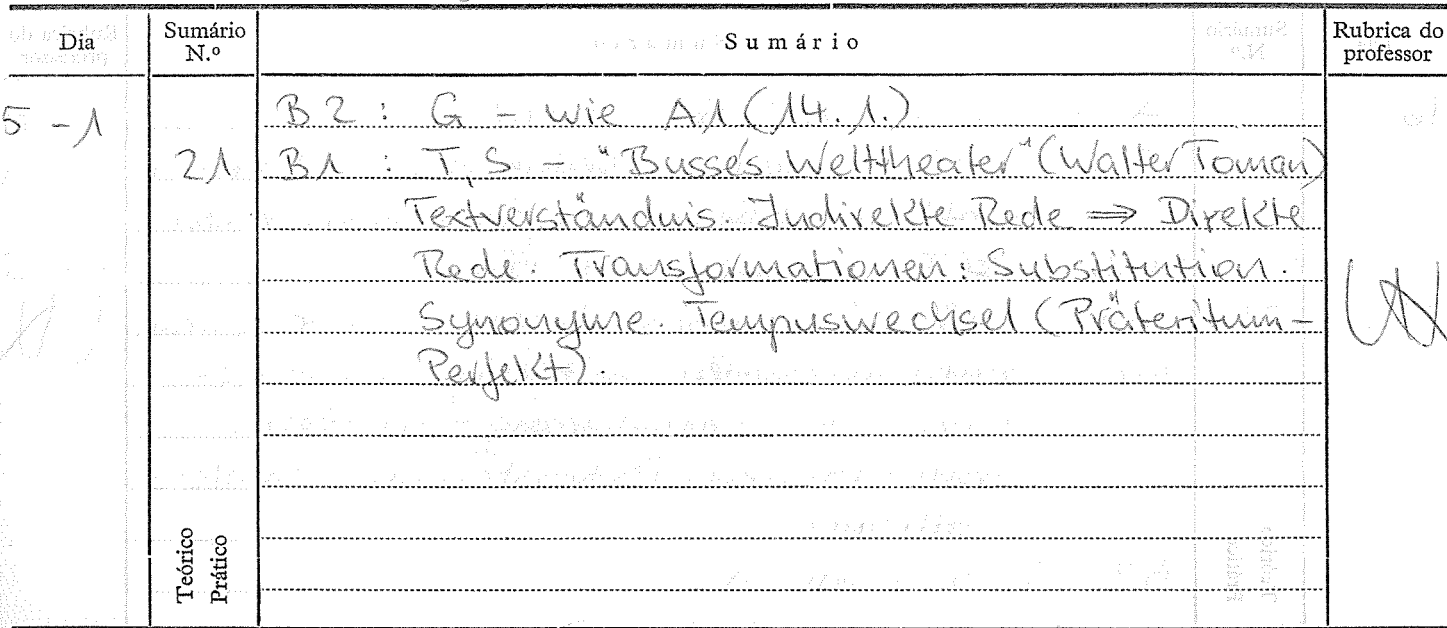 Dia
Sumário N.º
Sumário
Rubrica do professor
5 - 1
B2 : G - wie A1 (14.1.)
21 B1 : T, S - "Busses Welttheater" (Walter Toman)
Textverständnis. Indirekte Rede ⇒ Direkte
Rede. Transformationen: Substitution.
Synonyme. Tempuswechsel (Präteritum -
Perfekt).
Teórico
Prático